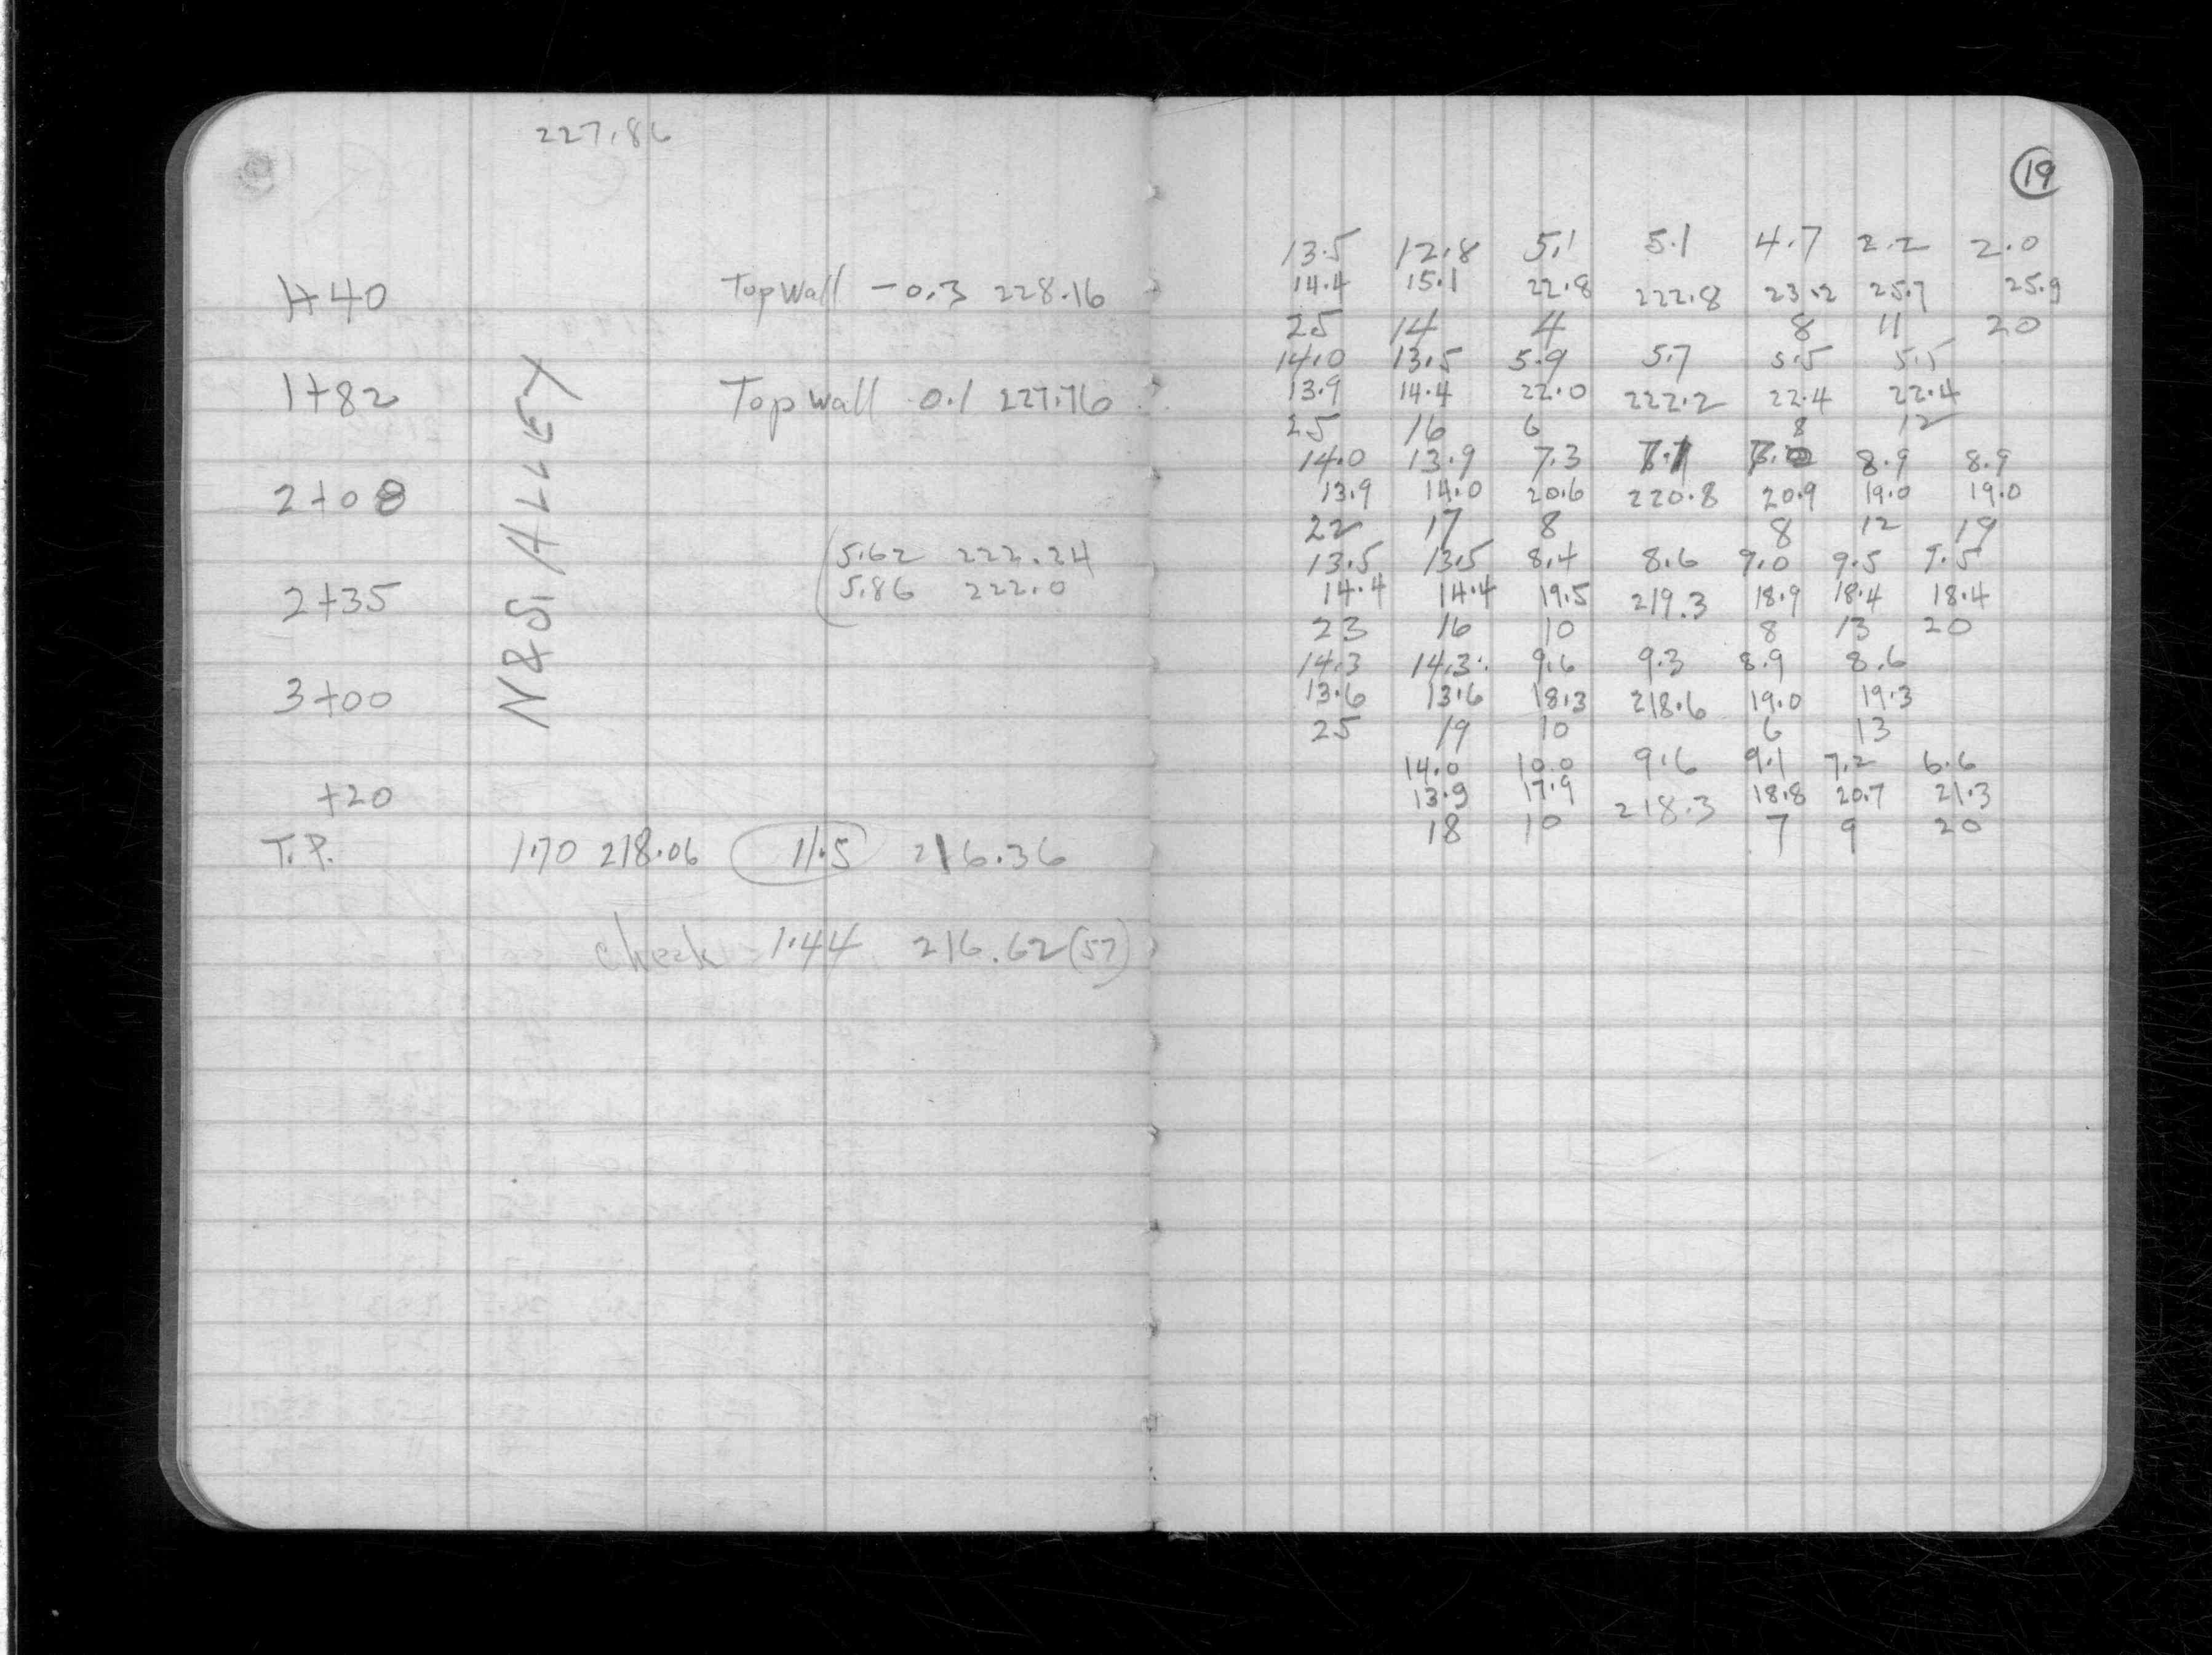 227.86
1+40 Top Wall -0.3 228.16
1+82 Top Wall 0.1 227.76
2+08
5.62 222.24
2+35 5.86 222.0
3+00
+20
T.P. 1.70 218.06 11.5 216.36
check 1.44 216.62(57)
N&S. ALLEY
19
13.5 12.8 5.1 5.1 4.7 2.2 2.0
14.4 15.1 22.8 222.8 23.2 25.7 25.9
25 14 4 8 11 20
14.0 13.5 5.9 5.7 5.5 5.5
13.9 14.4 22.0 222.2 22.4 22.4
25 16 6 8 12
14.0 13.9 7.3 7.1 7.0 8.9 8.9
13.9 14.0 20.6 220.8 20.9 19.0 19.0
22 17 8 8 12 19
13.5 13.5 8.4 8.6 9.0 9.5 9.5
14.4 14.4 19.5 219.3 18.9 18.4 18.4
23 16 10 8 13 20
14.3 14.3 9.6 9.3 8.9 8.6
13.6 13.6 18.3 218.6 19.0 19.3
25 19 10 6 13
14.0 10.0 9.6 9.1 7.2 6.6
13.9 17.9 218.3 18.8 20.7 21.3
18 10 7 9 20